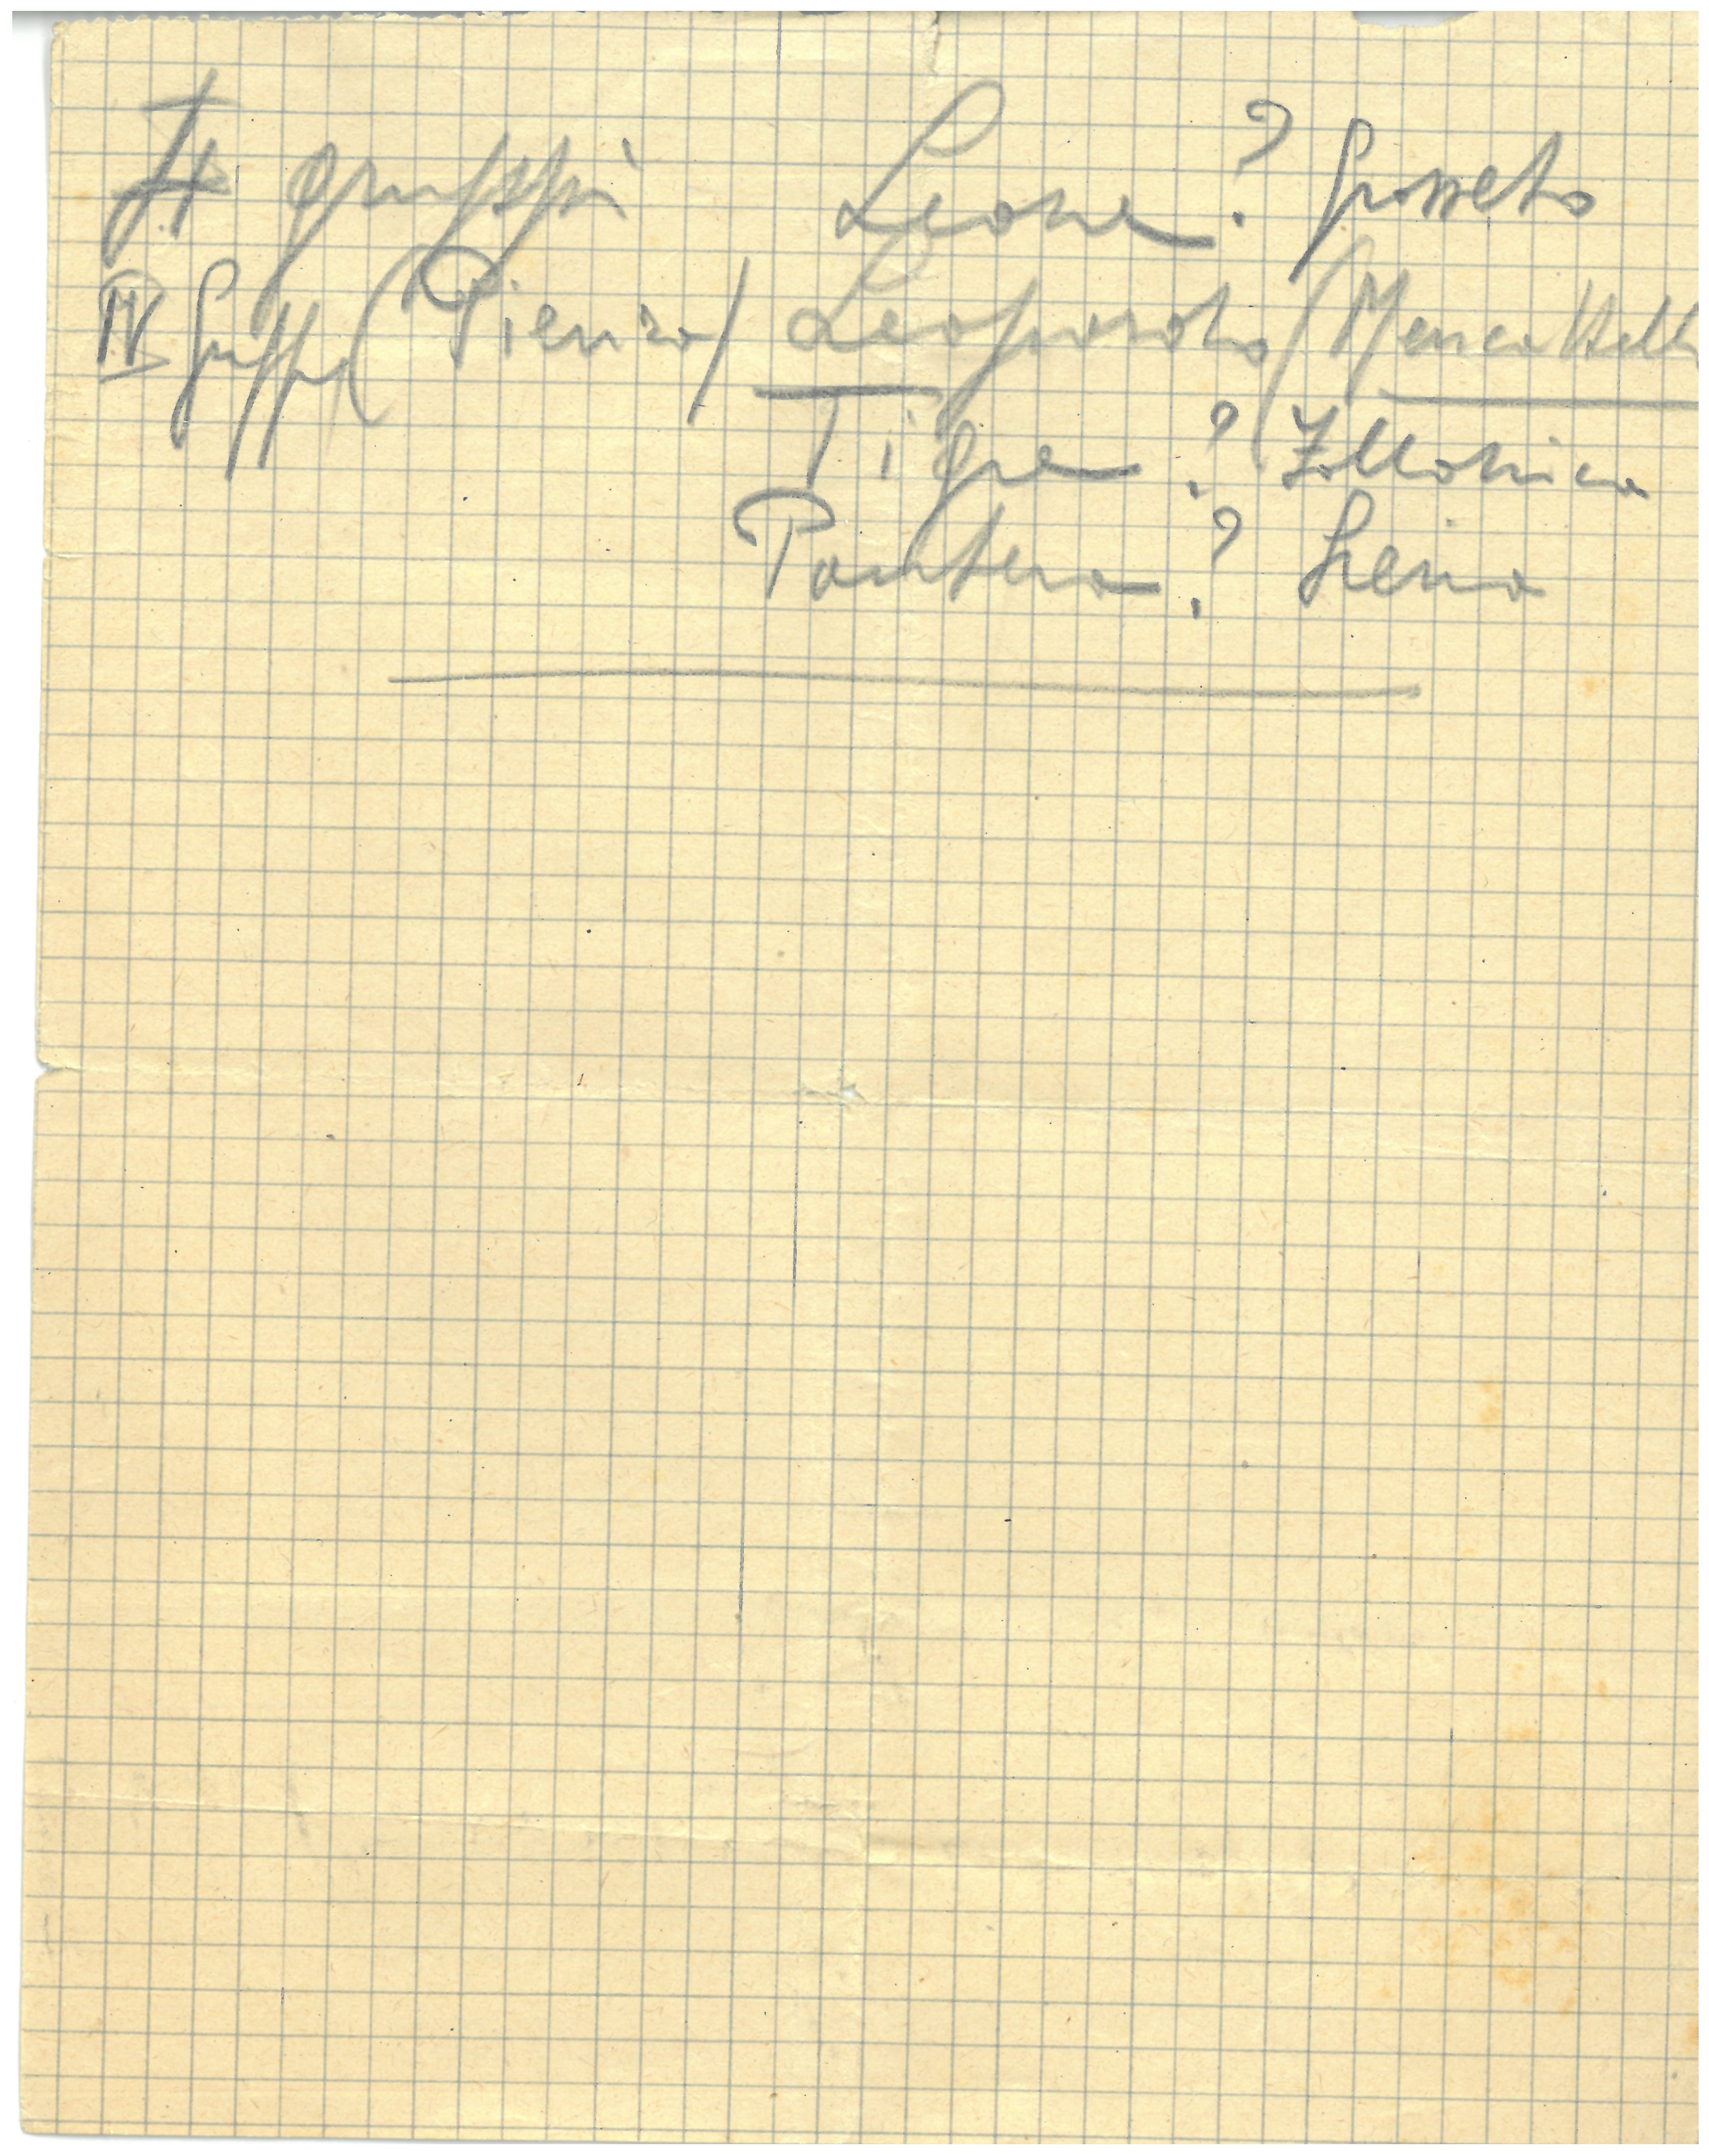 gruppi Leone ? Grosseto
IV Gruppo (Pienza) Leopardo (Mencattelli
Tigre ? Follonica
Pantera ? Siena